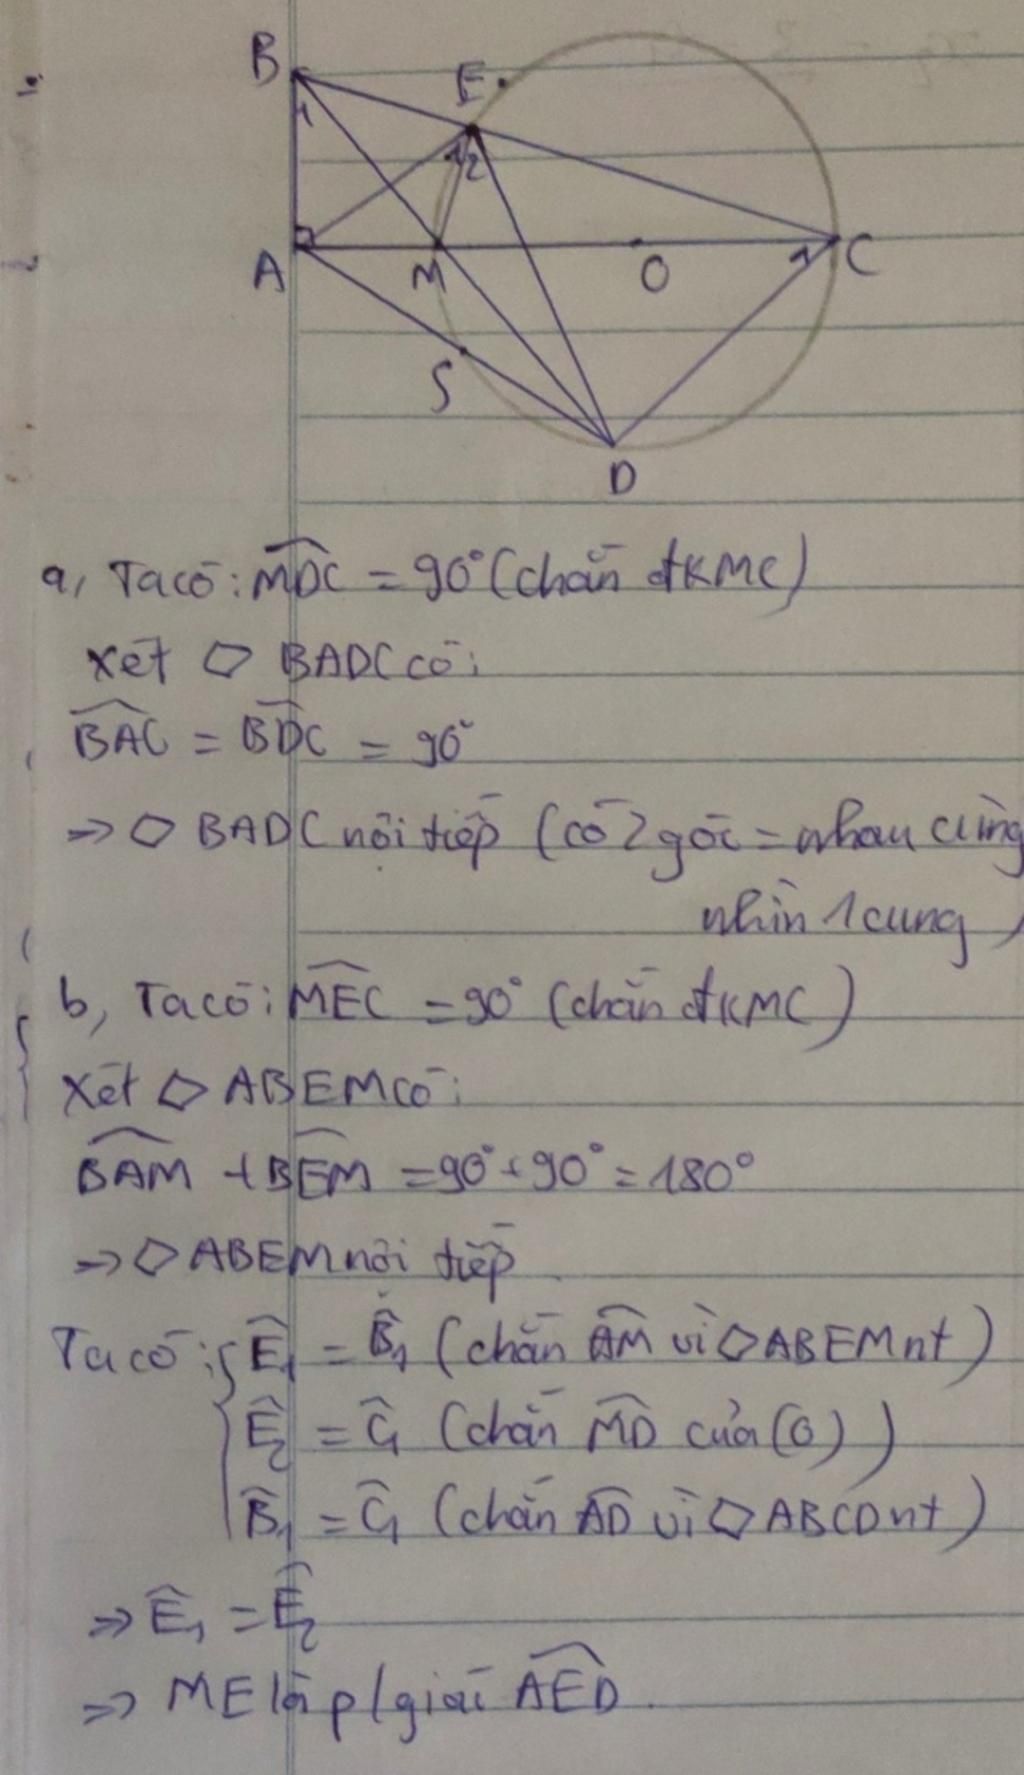 B
E
1
1
2
A
M
O
1
C
S
D
a, Ta có: MDC = 90° (chắn đk MC)
xét ▱ BADC có:
BAC = BDC = 90°
=> ▱ BADC nội tiếp (có 2 góc = nhau cùng
nhìn 1 cung)
b, Ta có: MEC = 90° (chắn đk MC)
Xét ▱ ABEM có:
BAM + BEM = 90° + 90° = 180°
=> ▱ ABEM nội tiếp
Ta có: { Ê₁ = B̂₁ (chắn AM vì ▱ ABEM nt)
Ê₂ = Ĉ₁ (chắn MD của (O))
B̂₁ = Ĉ₁ (chắn AD vì ▱ ABCD nt)
=> Ê₁ = Ê₂
=> ME là p/giác AED.